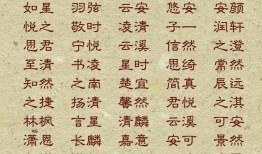 如星 羽弦 云安 悠安 安颜
悦之 敬时 云清 子一 润轩
思君 宁悦 安溪 信然 之澄
至清 书凌 星时 思绮 常然
知然 之南 楚宜 简真 辰远
之捷 扬清 馨然 君悦 之淇
林枫 言星 清麒 悦溪 可安
潇恩 长麟 嘉意 安可 景然